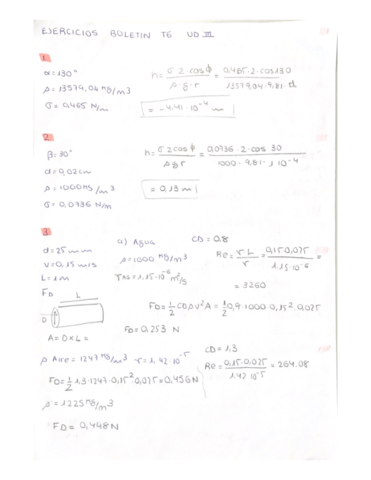 EJERCICIOS BOLETIN T6 UD.III
1.
α=130°
ρ=13579,04 kg/m3
σ=0,465 N/m
h= σ·2·cosφ / ρ·g·r = 0,465·2·cos130 / 13579,04·9,81·
= -4,41·10⁻⁴ m
2.
β=30°
d=0,02cm
ρ=1000 kg/m3
σ=0,0736 N/m
h= σ2cosφ / ρgr = 0,0736·2·cos 30 / 1000·9,81·1·10⁻⁴
= 0,13 m
3.
d=25mm
V=0,15 m/s
L=1m
a) Agua
ρ=1000 kg/m3
=1,15·10⁻⁶ m²/s
CD=0,8
Re= = 0,15·0,025 / 1,15·10⁻⁶ =
= 3260
FD
L
D
A=D×L=
FD=1/2 CDρV²A = 1/2 0,9·1000·0,15²·0,025
FD=0,253 N
ρ Aire=1247 kg/m3
=1,42·10⁻⁵
CD=1,3
Re= 0,15·0,025 / 1,42·10⁻⁵ = 264,08
FD=1/2 1,3·1247·0,15²·0,025=0,456N
ρ=1225 kg/m3
FD=0,448N